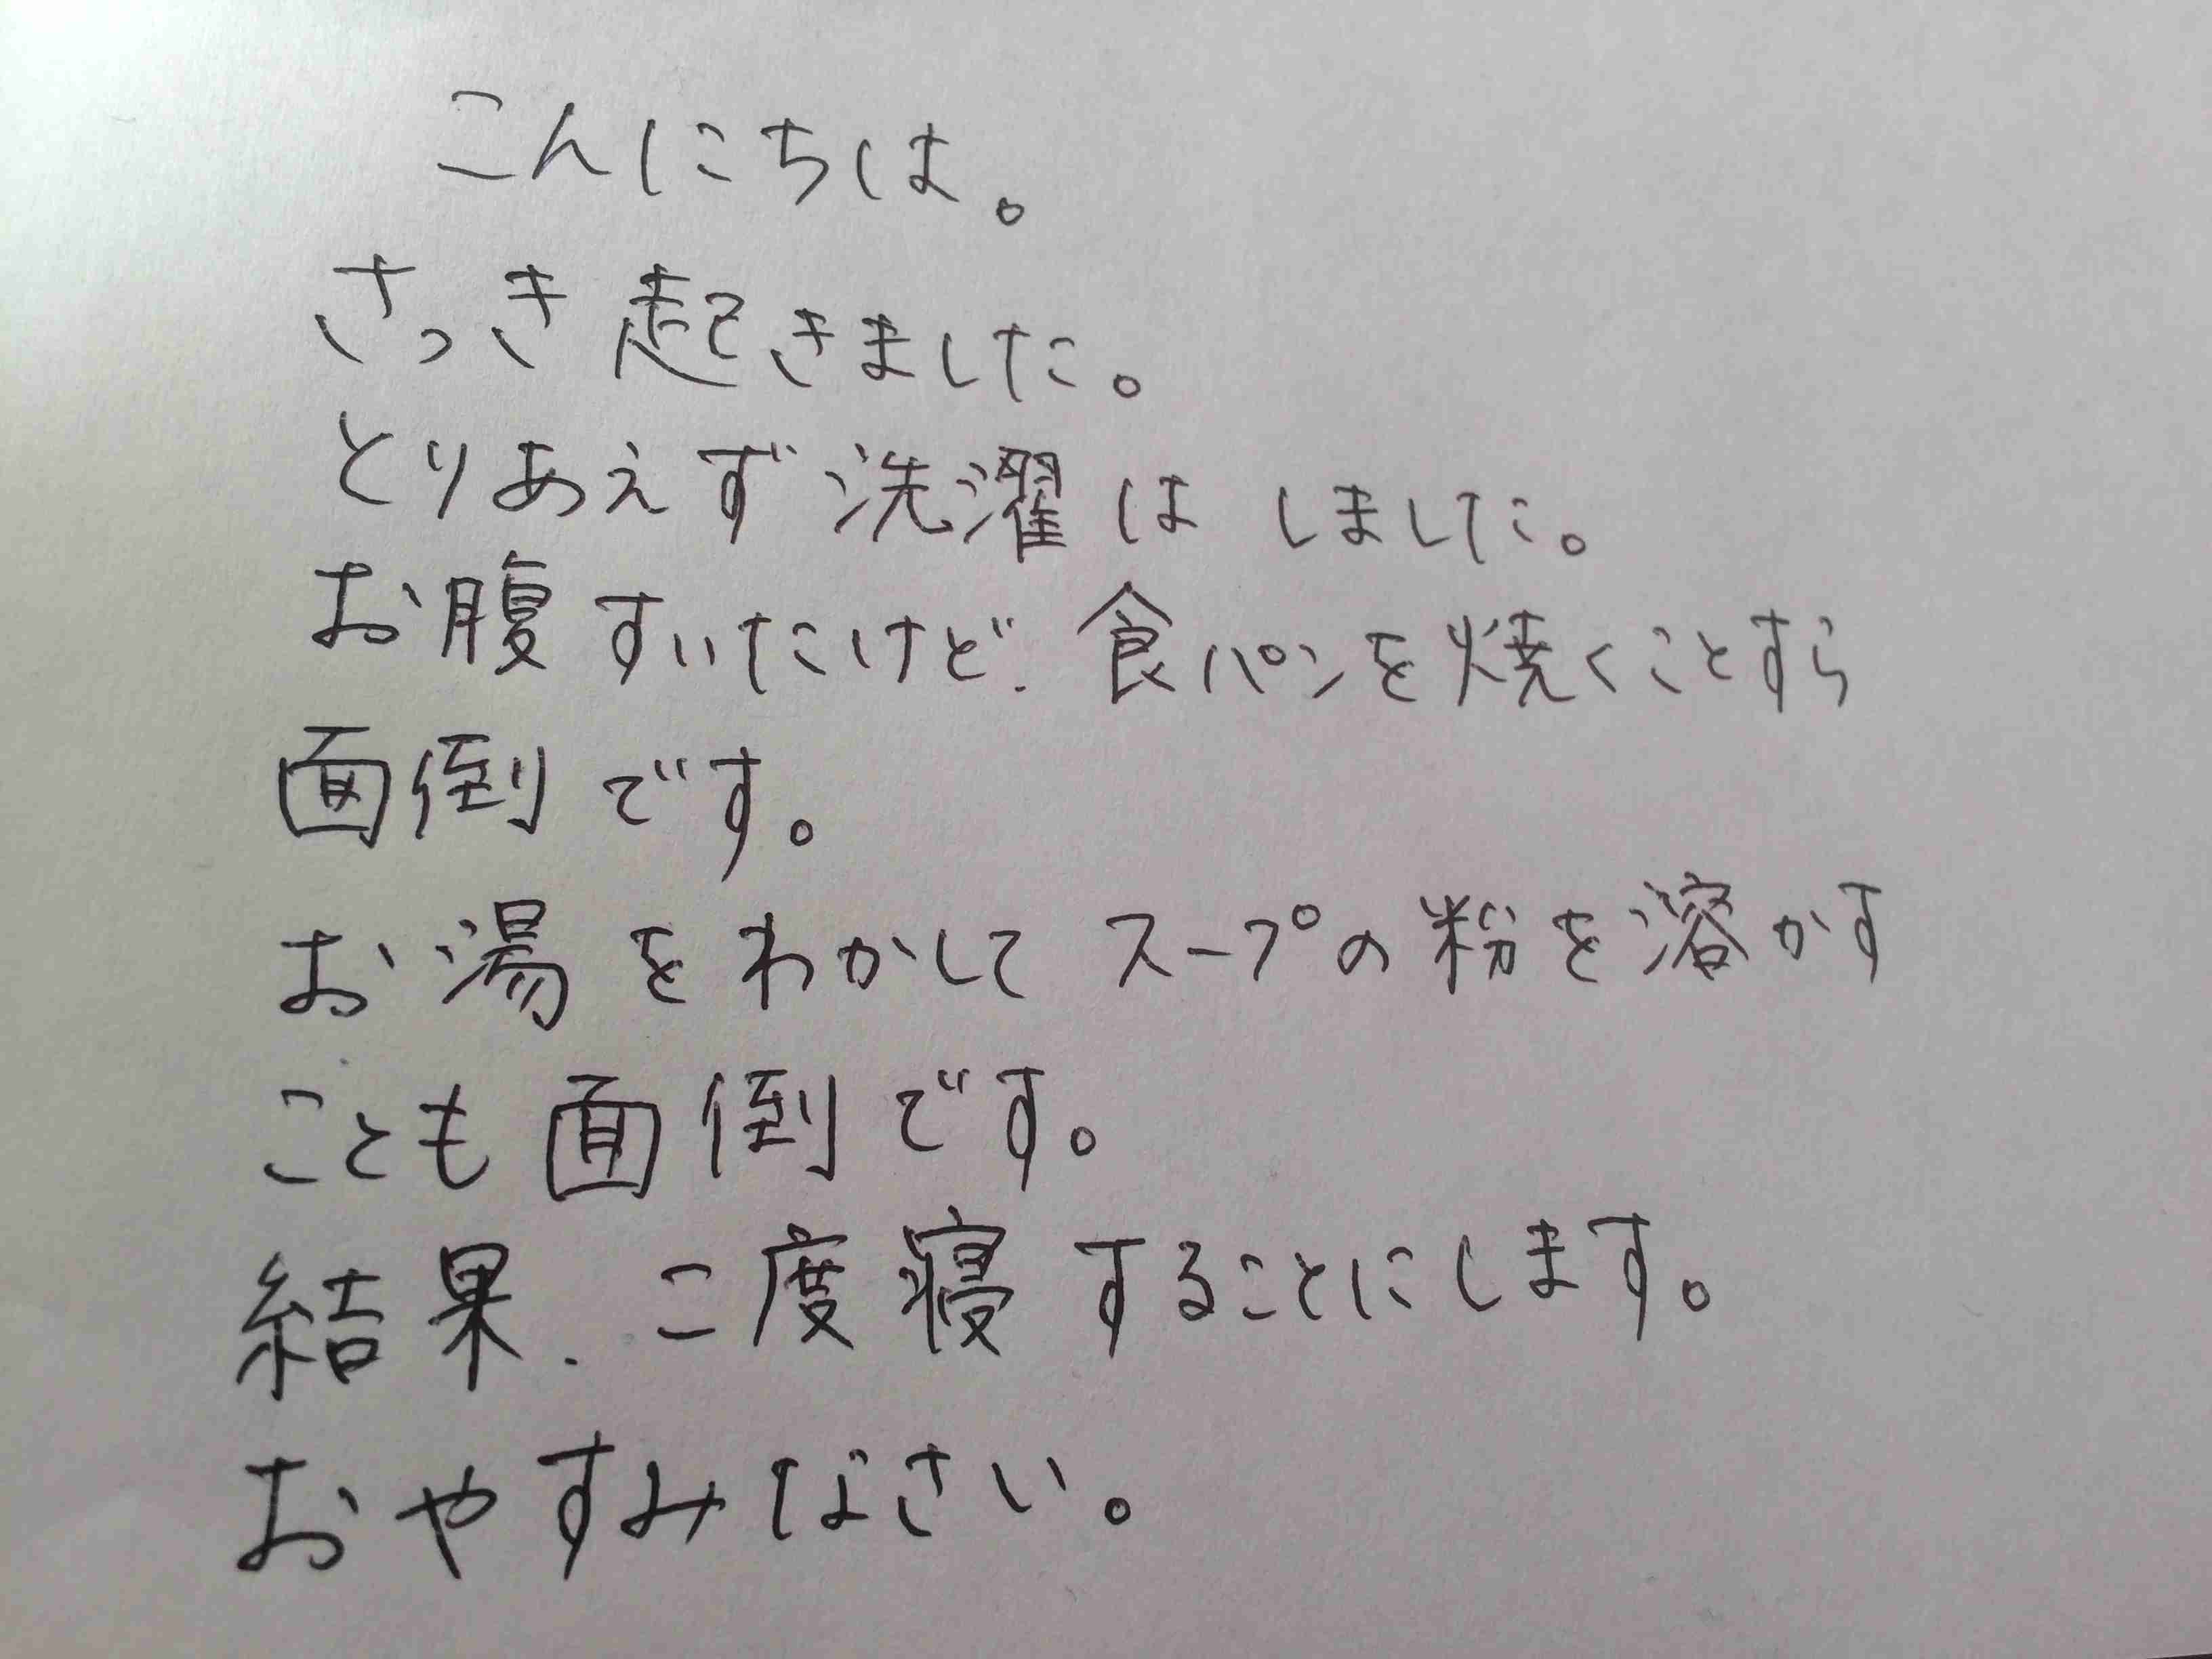 こんにちは。
さっき起きました。
とりあえず洗濯はしました。
お腹すいたけど、食パンを焼くことすら
面倒です。
お湯をわかしてスープの粉を溶かす
ことも面倒です。
結果、二度寝することにします。
おやすみなさい。